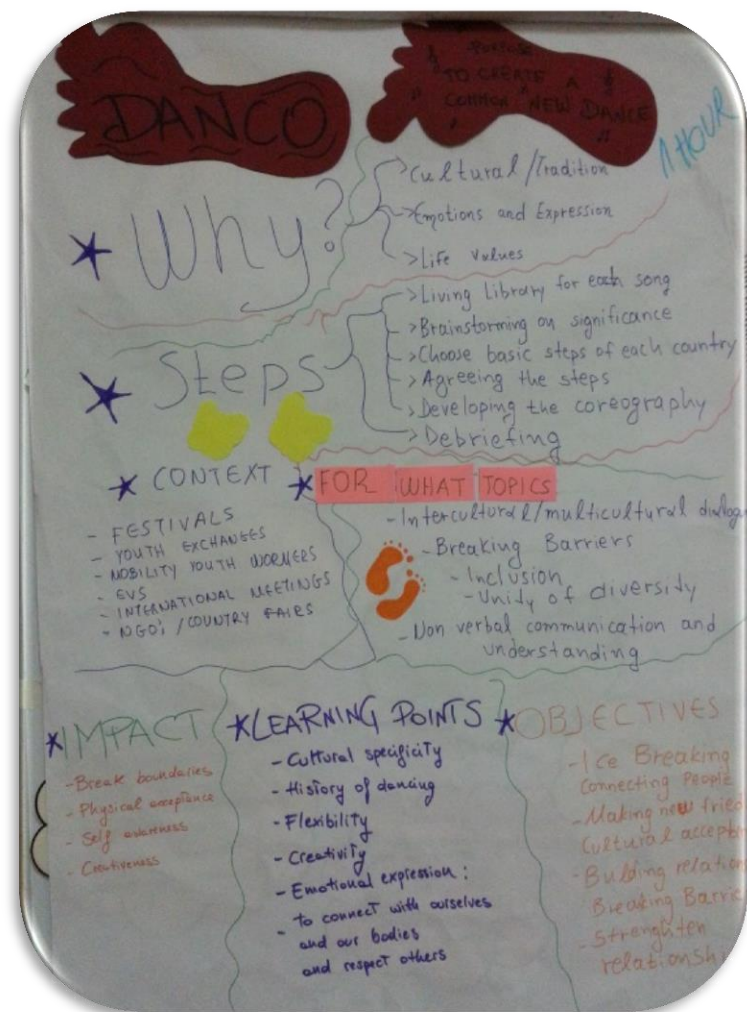 DANCO
PURPOSE
TO CREATE A
COMMON NEW DANCE
1 HOUR
Why?
>Cultural/Tradition
>Emotions and Expression
>Life Values
Steps
>Living Library for each song
>Brainstorming on significance
>Choose basic steps of each country
>Agreeing the steps
>Developing the coreography
>Debriefing
CONTEXT
- FESTIVALS
- YOUTH EXCHANGES
- MOBILITY YOUTH WORKERS
- EVS
- INTERNATIONAL MEETINGS
- NGO's /COUNTRY FAIRS
FOR WHAT TOPICS
- Intercultural/multicultural dialogu
- Breaking Barriers
- Inclusion
- Unity of diversity
- Non verbal communication and
understanding
IMPACT
- Break boundaries
- Physical acceptance
- Self awareness
- Creativeness
LEARNING POINTS
- Cultural specificity
- History of dancing
- Flexibility
- Creativity
- Emotional expression:
- to connect with ourselves
and our bodies
and respect others
OBJECTIVES
- Ice Breaking
Connecting People
- Making new fried
Cultural accept
- Building relation
Breaking Barrie
- Strenghten
relationshi